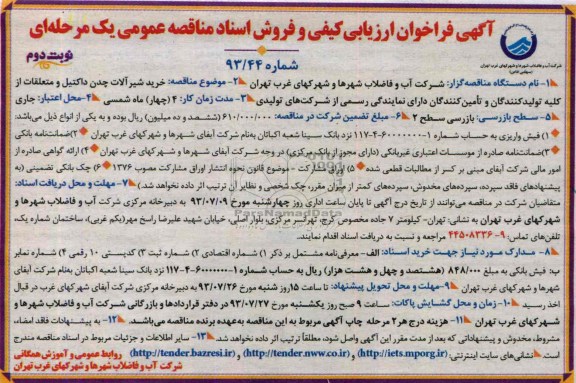 آگهی فراخوان ارزیابی کیفی و فروش اسناد مناقصه عمومی یک مرحله‌ای
شماره ۹۳/۴۴
نوبت دوم
شرکت آب و فاضلاب شهرها و شهرکهای غرب تهران
(سهامی خاص)
۱- نام دستگاه مناقصه‌گزار: شرکت آب و فاضلاب شهرها و شهرکهای غرب تهران ۲- موضوع مناقصه: خرید شیرآلات چدن داکتیل و متعلقات از
کلیه تولیدکنندگان و تأمین‌کنندگان دارای نمایندگی رسمی از شرکت‌های تولیدی ۳- مدت زمان کار: ۴ (چهار) ماه شمسی ۴- محل اعتبار: جاری
۵- سطح بازرسی: بازرسی سطح ۲ ۶- مبلغ تضمین شرکت در مناقصه: ۶۱۰/۰۰۰/۰۰۰ (ششصد و ده میلیون) ریال بوده و به یکی از انواع ذیل می‌باشد:
۱) فیش واریزی به حساب شماره ۱-۶۰۰۰۰۰۰۰-۴-۱۱۷ نزد بانک سینا شعبه اکباتان به‌نام شرکت آبفای شهرها و شهرکهای غرب تهران ۲) ضمانتنامه بانکی
۳) ضمانتنامه صادره از موسسات اعتباری غیربانکی (دارای مجوز از بانک مرکزی) در وجه شرکت آبفای شهرها و شهرکهای غرب تهران ۴) ارائه گواهی صادره از
امور مالی شرکت آبفای مبنی بر کسر از مطالبات قطعی شده ۵) اوراق مشارکت - موضوع قانون نحوه انتشار اوراق مشارکت مصوب ۱۳۷۶ ۶) چک بانکی تضمینی (به
پیشنهادهای فاقد سپرده، سپرده‌های مخدوش، سپرده‌های کمتر از میزان مقرر، چک شخصی و نظایر آن ترتیب اثر داده نخواهد شد.) ۷- مهلت و محل دریافت اسناد:
متقاضیان شرکت در مناقصه می‌توانند از تاریخ درج آگهی تا پایان ساعت اداری روز چهارشنبه مورخ ۹۳/۰۷/۰۹ به دبیرخانه مرکزی شرکت آب و فاضلاب شهرها و
شهرکهای غرب تهران به نشانی: تهران- کیلومتر ۷ جاده مخصوص کرج، تهرانسر مرکزی، بلوار اصلی، خیابان شهید علیرضا راسخ مهر (یکم غربی)، ساختمان شماره یک،
تلفن‌های تماس: ۹-۴۴۵۰۸۳۳۶ مراجعه و نسبت به دریافت اسناد اقدام نمایند.
۸- مدارک مورد نیاز جهت خرید اسناد: الف- معرفی‌نامه مشتمل بر ذکر ۱) شماره اقتصادی ۲) شماره ثبت ۳) کدپستی ۱۰ رقمی ۴) شماره نمابر
ب: فیش بانکی به مبلغ ۸۴۸/۰۰۰ (هشتصد و چهل و هشت هزار) ریال به حساب شماره ۱-۶۰۰۰۰۰۰۰-۴-۱۱۷ نزد بانک سینا شعبه اکباتان به‌نام شرکت آبفای
شهرها و شهرکهای غرب تهران ۹- مهلت و محل تحویل پیشنهاد: تا ساعت ۱۵ روز شنبه مورخ ۹۳/۰۷/۲۶ به دبیرخانه مرکزی شرکت آبفای شهرکهای غرب در قبال
اخذ رسید ۱۰- زمان و محل گشایش پاکات: ساعت ۹ صبح روز یکشنبه مورخ ۹۳/۰۷/۲۷ در دفتر قراردادها و بازرگانی شرکت آب و فاضلاب شهرها و
شهرکهای غرب تهران ۱۱- هزینه درج هر ۲ مرحله چاپ آگهی مربوط به این مناقصه به‌عهده برنده مناقصه می‌باشد. ۱۲- به پیشنهادات فاقد امضاء،
مشروط، مخدوش و پیشنهاداتی که بعد از مدت مقرر این آگهی واصل شود، مطلقاً ترتیب اثر داده نخواهد شد. ۱۳- سایر اطلاعات و جزئیات مربوط در اسناد مناقصه مندرج
است. نشانی‌های سایت اینترنتی: (http://iets.mporg.ir) و (http://tender.nww.co.ir) و (http://tender.bazresi.ir)
روابط عمومی و آموزش همگانی
شرکت آب و فاضلاب شهرها و شهرکهای غرب تهران
ParsNamadData